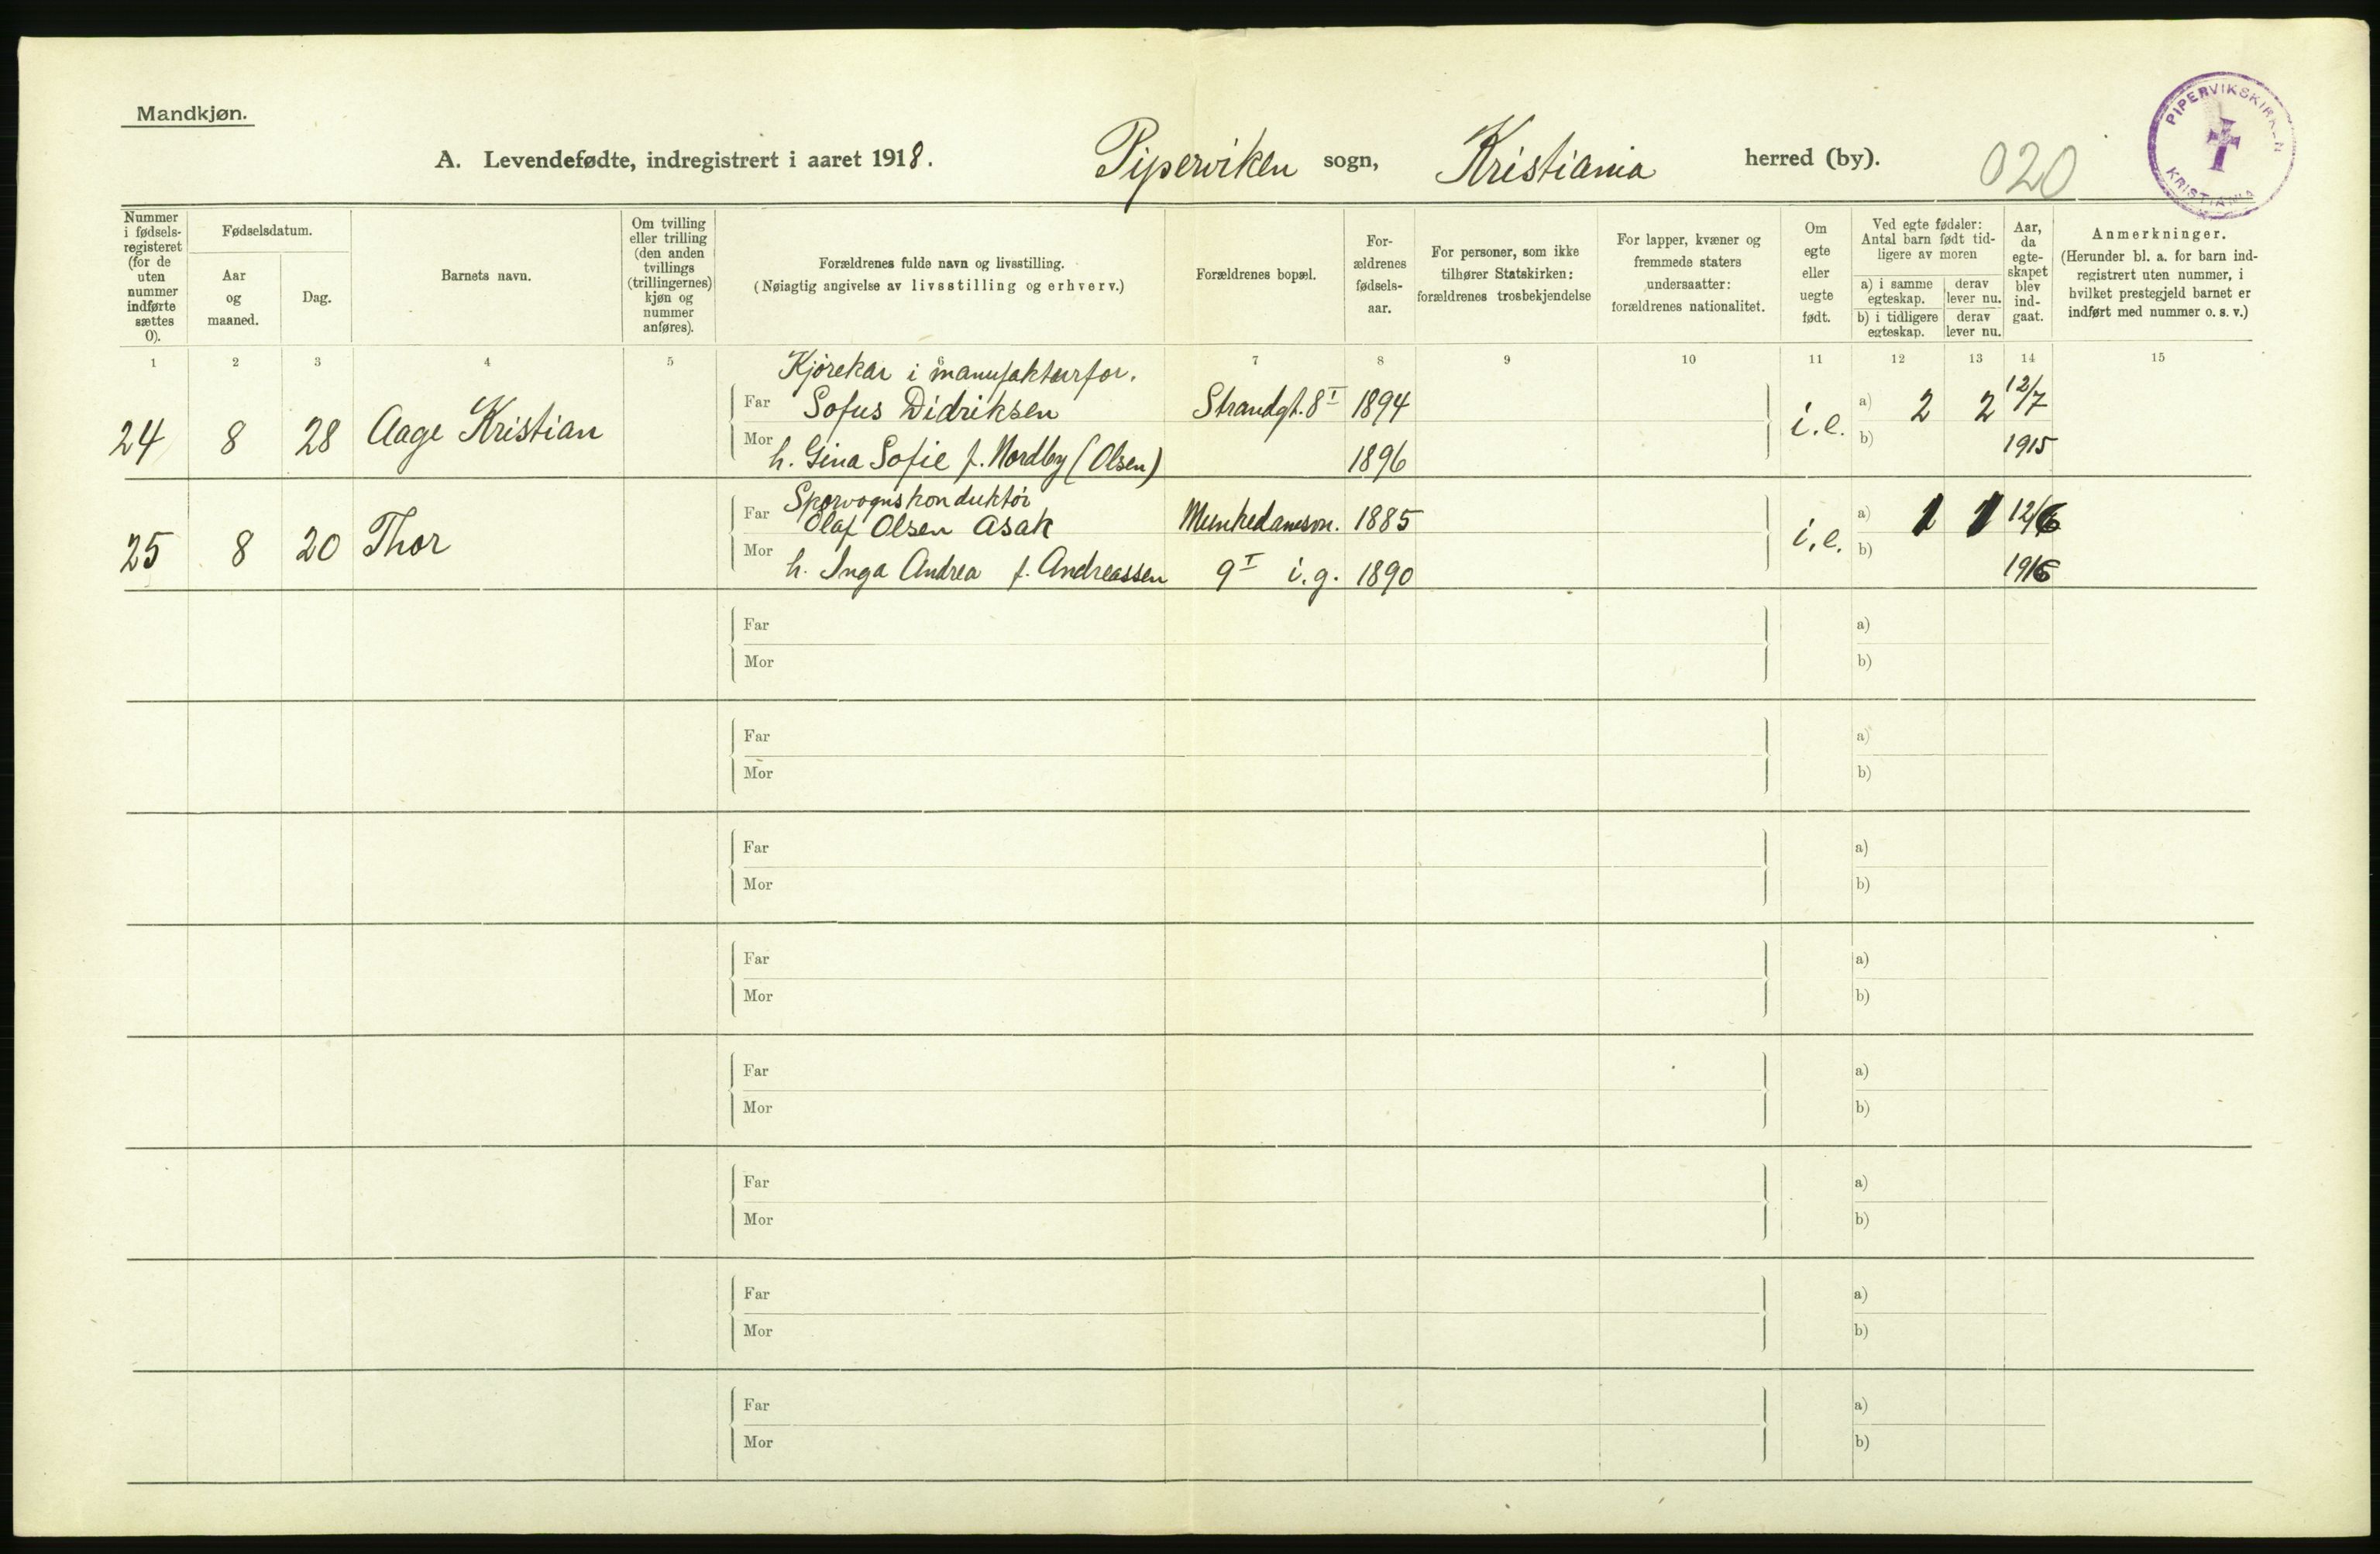 Mandkjøn.
A. Levendefødte, indregistrert i aaret 1918.
Piperviken sogn, Kristiania herred (by).
020
PIPERVIKSKIRKEN
KRISTIANIA
Nummer i fødsels-registeret (for de uten nummer indførte sættes 0).
Fødselsdatum.
Aar og maaned.
Dag.
Barnets navn.
Om tvilling eller trilling (den anden tvillings (trillingernes) kjøn og nummer anføres).
Forældrenes fulde navn og livsstilling.
(Nøiagtig angivelse av livsstilling og erhverv.)
Forældrenes bopæl.
For-ældrenes fødsels-aar.
For personer, som ikke tilhører Statskirken: forældrenes trosbekjendelse
For lapper, kvæner og fremmede staters undersaatter: forældrenes nationalitet.
Om egte eller uegte født.
Ved egte fødsler: Antal barn født tid-ligere av moren
a) i samme egteskap.
derav lever nu.
b) i tidligere egteskap.
derav lever nu.
Aar, da egte-skapet blev ind-gaat.
Anmerkninger.
(Herunder bl. a. for barn ind-registrert uten nummer, i hvilket prestegjeld barnet er indført med nummer o. s. v.)
1 2 3 4 5 6 7 8 9 10 11 12 13 14 15
Kjørekar i manufakturfor.
24 8 28 Aage Kristian Far Sofus Didriksen Strandgt. 8 I 1894 i. e. a) 2 2 12/7
Mor h. Gina Sofie f. Nordby (Olsen) 1896 b) 1915
Sporvognskonduktør
25 8 20 Thor Far Olaf Olsen Asak Munkedamsvn. 1885 i. e. a) 1 1 12/6
Mor h. Inga Andrea f. Andreassen 9 I i. g. 1890 b) 1916
Far a)
Mor b)
Far a)
Mor b)
Far a)
Mor b)
Far a)
Mor b)
Far a)
Mor b)
Far a)
Mor b)
Far a)
Mor b)
Far a)
Mor b)